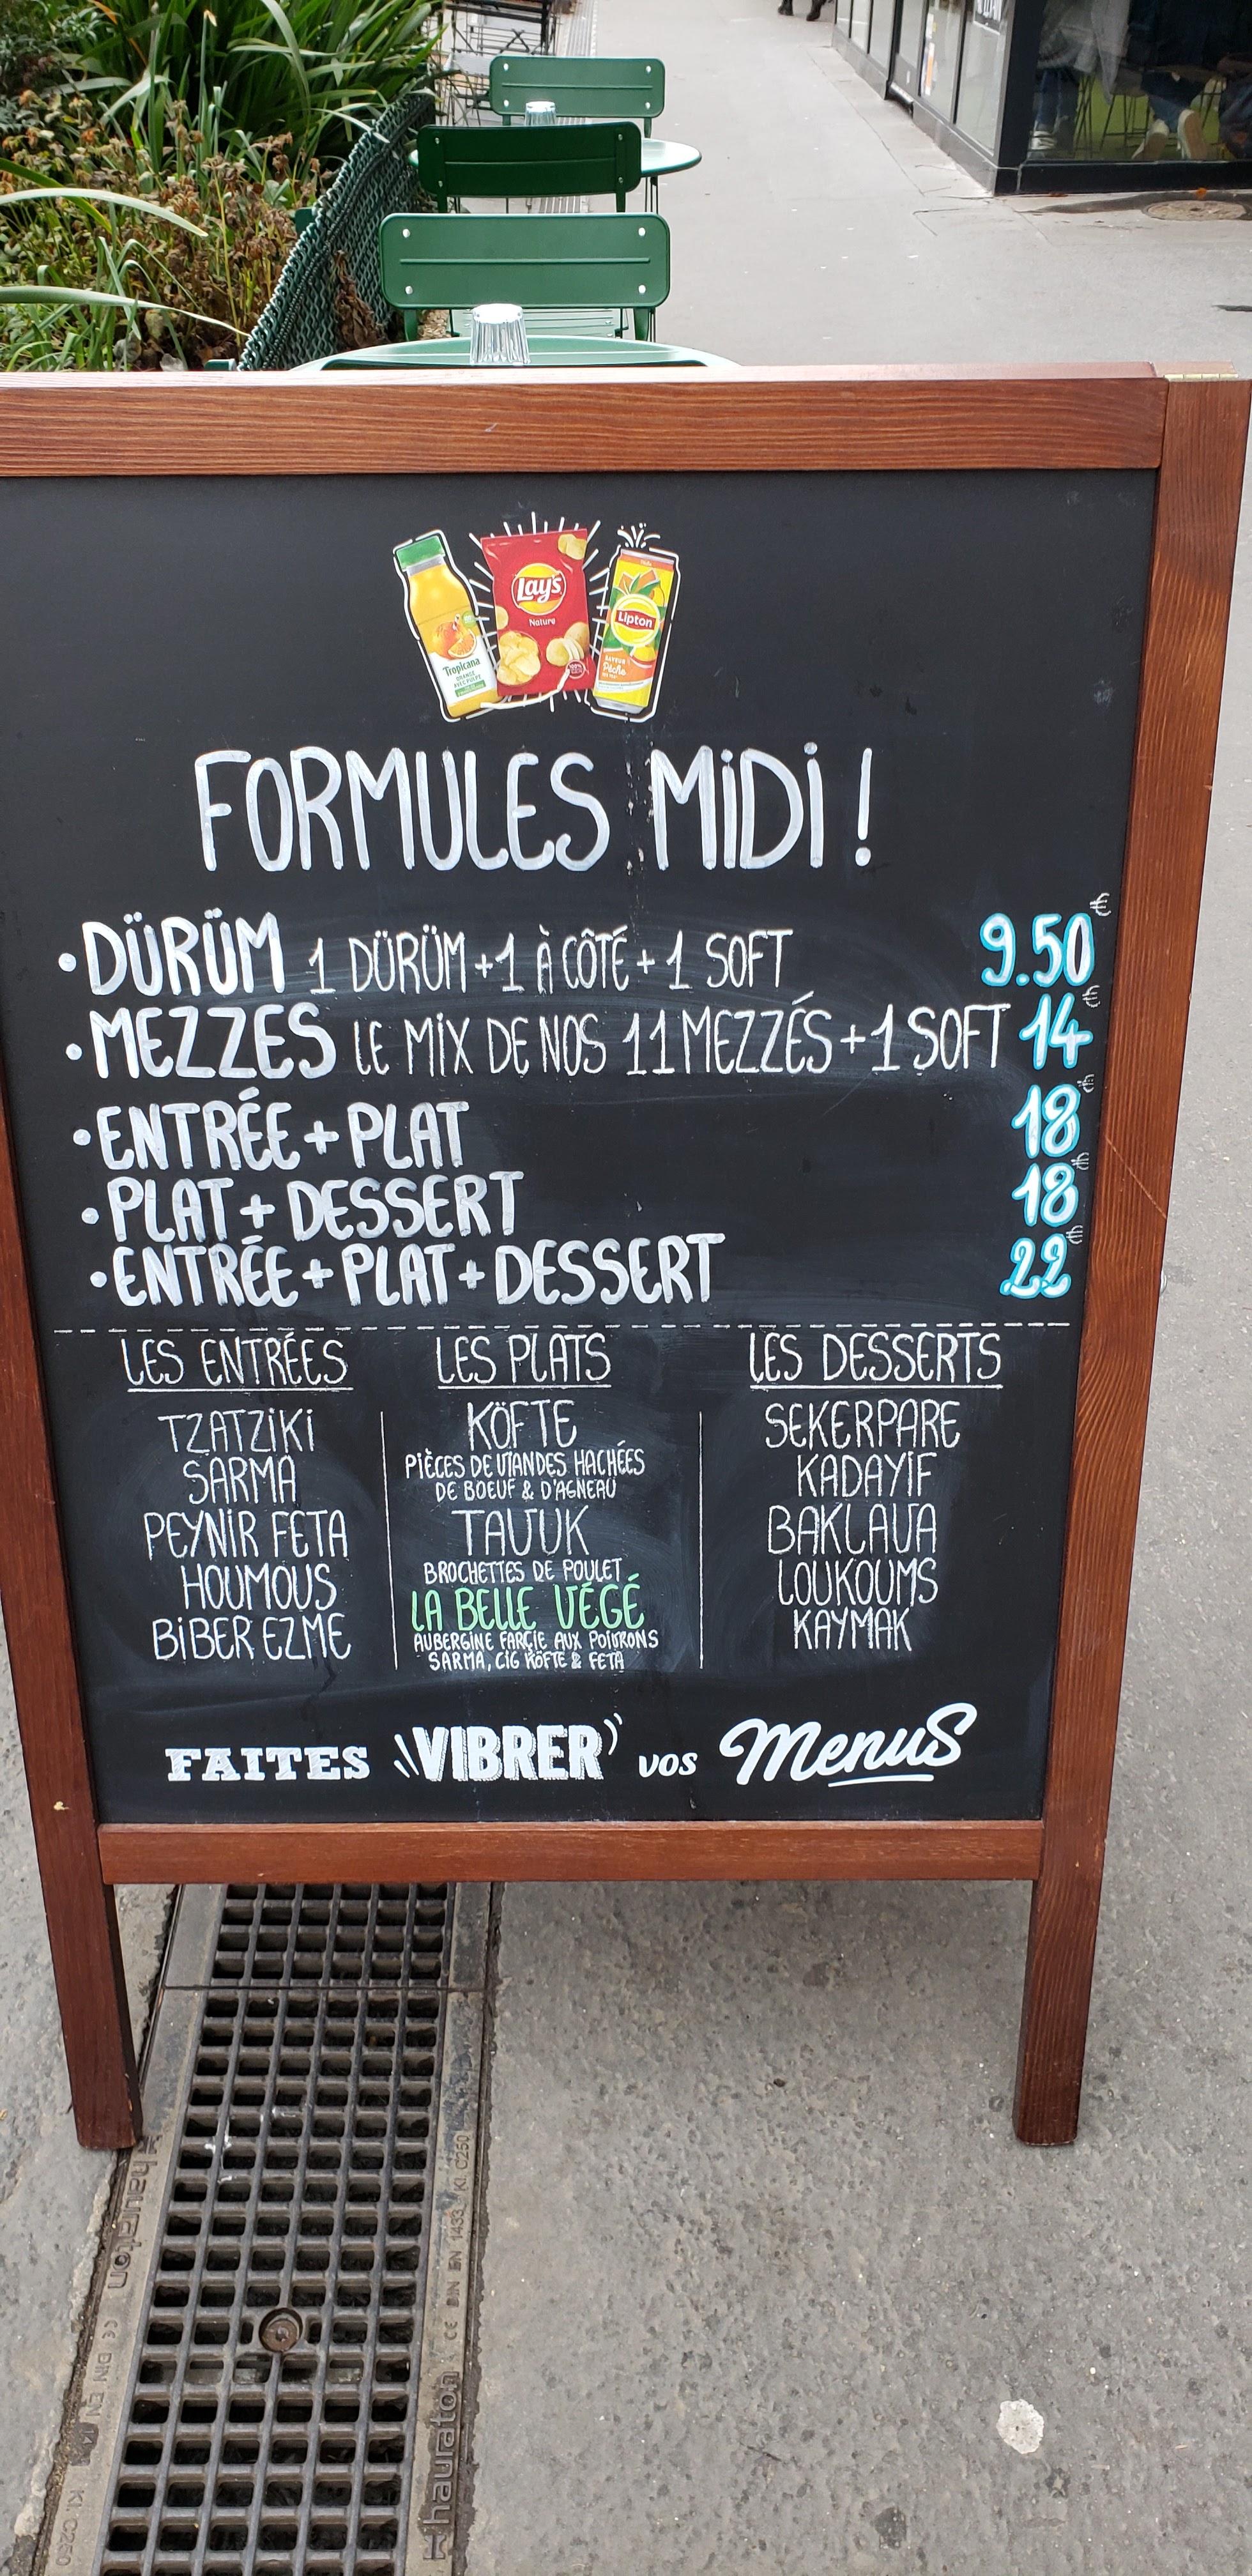 Tropicana
ORANGE
AVEC PULPE
Lay's
Nature
Lipton
SAVEUR
Pêche
FORMULES MiDi !
• DÜRÜM 1 DÜRÜM + 1 À CÔTÉ + 1 SOFT 9.50 €
• MEZZES LE MiX DE NOS 11 MEZZÉS + 1 SOFT 14 €
• ENTRÉE + PLAT 18 €
• PLAT + DESSERT 18 €
• ENTRÉE + PLAT + DESSERT 22 €
LES ENTRÉES
TZATZiKi
SARMA
PEYNiR FETA
HOUMOUS
BiBER EZME
LES PLATS
KÖFTE
PIÈCES DE VIANDES HACHÉES
DE BOEUF & D'AGNEAU
TAVUK
BROCHETTES DE POULET
LA BELLE VÉGÉ
AUBERGINE FARÇIE AUX POIVRONS
SARMA, CIG KÖFTE & FETA
LES DESSERTS
SEKERPARE
KADAYIF
BAKLAVA
LOUKOUMS
KAYMAK
FAITES VIBRER vos Menus
hauraton
CE DIN EN
KI. C250
hauraton CE DIN EN 1433 KI. C250